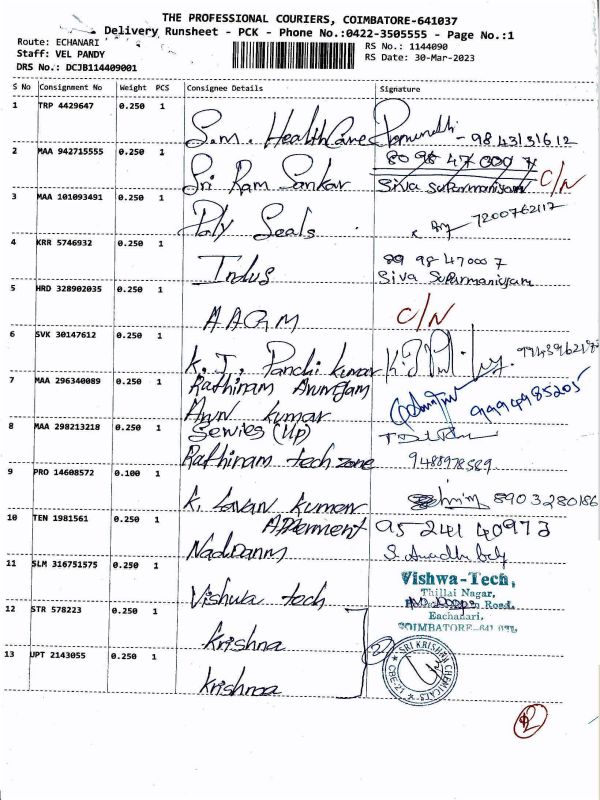 THE PROFESSIONAL COURIERS, COIMBATORE-641037
Delivery Runsheet - PCK - Phone No.:0422-3505555 - Page No.:1
Route: ECHANARI
RS No.: 1144090
Staff: VEL PANDY
RS Date: 30-Mar-2023
DRS No.: DCJB114409001
S No Consignment No Weight PCS Consignee Details Signature
1 TRP 4429647 0.250 1
S.m. HealthCare - 9843131612
2 MAA 942715555 0.250 1
8098470007
Sri Ram Sankar Siva Suburmaniyam C/N
3 MAA 101093491 0.250 1
Poly Seals 7200762117
4 KRR 5746932 0.250 1
8998470007
Indus Siva Suburmaniyam
5 HRD 328902035 0.250 1
AAGM C/N
6 SVK 30147612 0.250 1
K.J. Panchi kumar
7 MAA 296340089 0.250 1
Rathinam
Arun kumar 9994985205
8 MAA 298213218 0.250 1
(Up)
Rathinam tech zone 9488978589
9 PRO 14608572 0.100 1
K. kumar 8903280186
10 TEN 1981561 0.250 1
9524140973
11 SLM 316751575 0.250 1
Vishwa tech
Vishwa-Tech,
Thillai Nagar,
Road,
Eachanari,
COIMBATORE-641 021.
12 STR 578223 0.250 1
krishna
2
SRI KRISHNA CHEMICALS
CBE-21
13 UPT 2143055 0.250 1
krishna
12